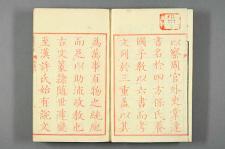 以察周官外史掌達
書名於四方保氏養
國子教以六書而考
文列於三重蓋以其
為萬事百物之統紀
而足以助流政教也
古文篆隸隨世遞變
至漢許氏始有說文